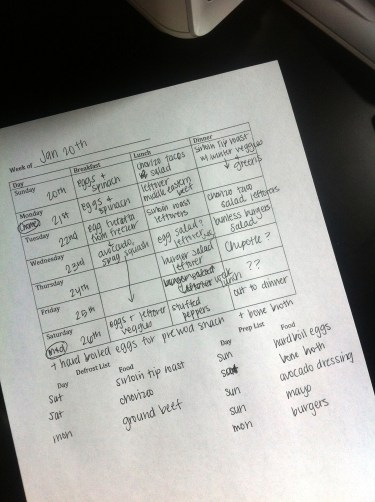 Week of Jan 20th
Day Breakfast Lunch Dinner
Sunday 20th eggs + spinach chorizo tacos salad sirloin tip roast w/ winter veggies
Monday (home) 21st eggs + spinach leftover middle eastern beef ↓ + greens
Tuesday 22nd egg frittata from freezer sirloin roast leftovers chorizo taco salad leftovers
Wednesday 23rd + avocado, spag squash egg salad? leftover bunless burgers salad
Thursday 24th burger salad leftover Chipotle?
Friday 25th lunch ??
Saturday 26th eggs + leftover veggies stuffed peppers out to dinner
+ hard boiled eggs for prewod snack + bone broth
Defrost List
Day Food
sat sirloin tip roast
sat chorizo
mon ground beef
Prep List
Day Food
sun hardboil eggs
bone broth
sun avocado dressing
sun mayo
mon burgers